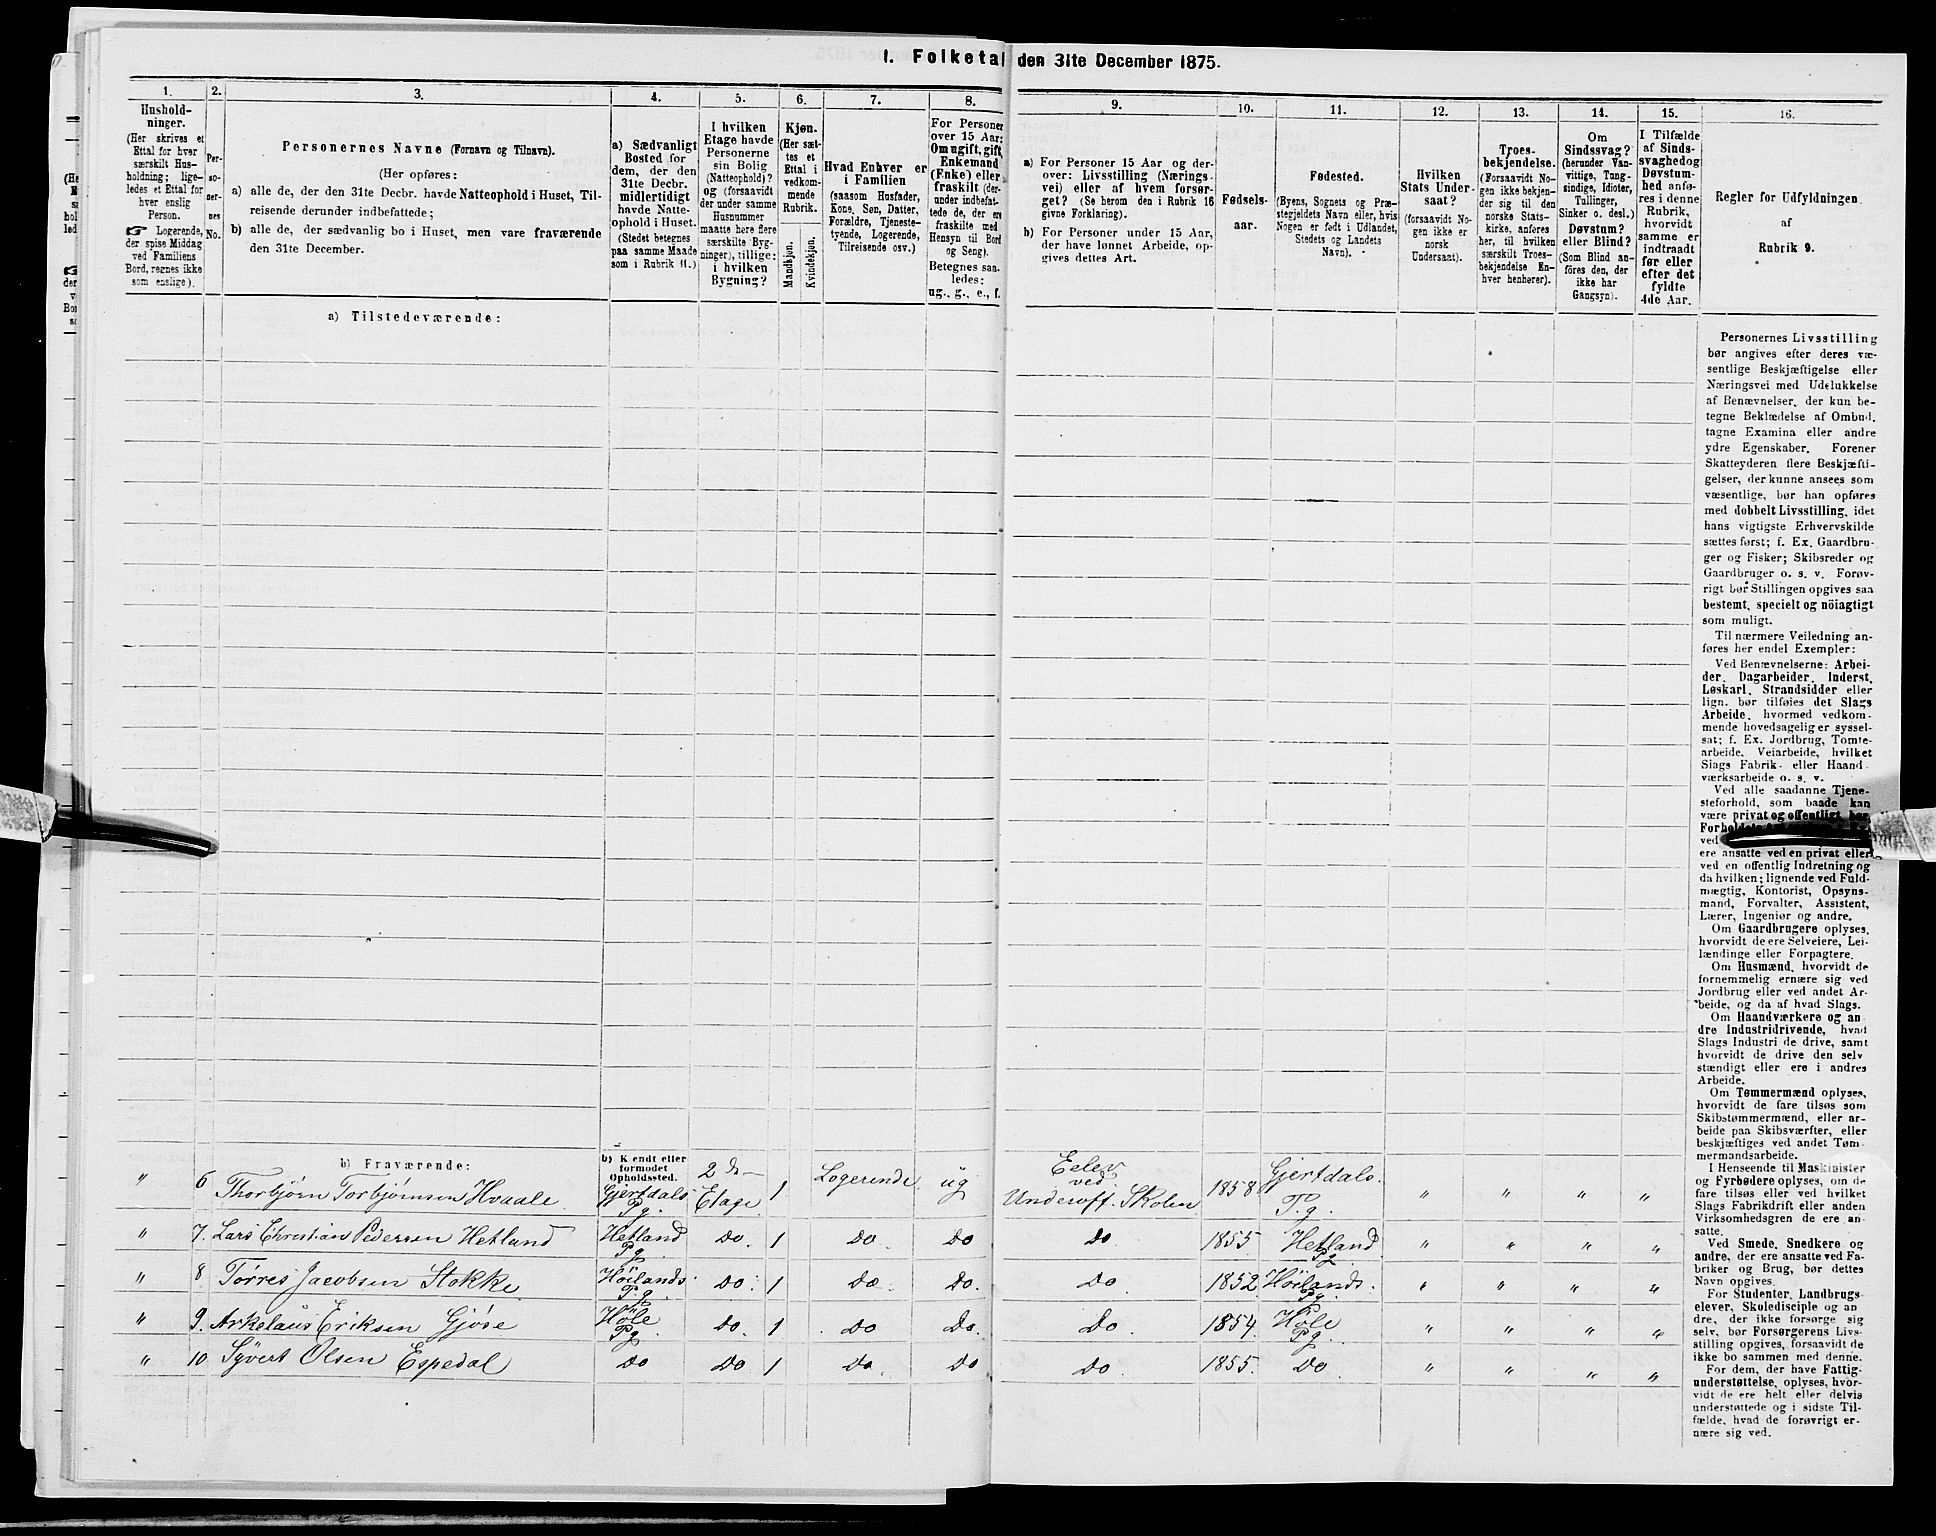 I. Folketal den 31te December 1875.
1.
Hushold-
ninger.
(Her skrives et
Ettal for hver
særskilt Hus-
holdning; lige-
ledes et Ettal for
hver enslig
Person.
☞ Logerende,
der spise Middag
ved Familiens
Bord, regnes ikke
som enslige).
2.
Per-
so-
ner-
nes
No.
3.
Personernes Navne (Fornavn og Tilnavn).
(Her opføres:
a) alle de, der den 31te Decbr. havde Natteophold i Huset, Til-
reisende derunder indbefattede;
b) alle de, der sædvanlig bo i Huset, men vare fraværende
den 31te December.
4.
a) Sædvanligt
Bosted for
dem, der den
31te Decbr.
midlertidigt
havde Natte-
ophold i Huset.
(Stedet betegnes
paa samme Maade
som i Rubrik 11.)
5.
I hvilken
Etage havde
Personerne
sin Bolig
(Natteophold)?
og (forsaavidt
der under samme
Husnummer
maatte høre flere
særskilte Byg-
ninger), tillige:
i hvilken
Bygning?
6.
Kjøn.
(Her sæt-
tes et
Ettal i
vedkom-
mende
Rubrik.
Mandkjøn.
Kvindekjøn.
7.
Hvad Enhver er
i Familien
(saasom Husfader,
Kone, Søn, Datter,
Forældre, Tjeneste-
tyende, Logerende,
Tilreisende osv.)
8.
For Personer
over 15 Aar:
Om ugift, gift,
Enkemand
(Enke) eller
fraskilt (der-
under indbefat-
tede de, der ere
fraskilte med
Hensyn til Bord
og Seng).
Betegnes saa-
ledes:
ug., g., e., f.
9.
a) For Personer 15 Aar og der-
over: Livsstilling (Nærings-
vei) eller af hvem forsør-
get? (Se herom den i Rubrik 16
givne Forklaring).
b) For Personer under 15 Aar,
der have lønnet Arbeide, op-
gives dettes Art.
10.
Fødsels-
aar.
11.
Fødested.
(Byens, Sognets og Præ-
stegjeldets Navn eller, hvis
Nogen er født i Udlandet,
Stedets og Landets
Navn).
12.
Hvilken
Stats Under-
saat?
(forsaavidt No-
gen ikke er
norsk
Undersaat).
13.
Troes-
bekjendelse.
(Forsaavidt No-
gen ikke bekjen-
der sig til den
norske Stats-
kirke, anføres
her, til hvilken
særskilt Troes-
bekjendelse En-
hver henhører).
14.
Om
Sindssvag?
(herunder Van-
vittige, Tung-
sindige, Idioter,
Tullinger,
Sinker o. desl.)
Døvstum?
eller Blind?
(Som Blind an-
føres den, der
ikke har
Gangsyn).
15.
I Tilfælde
af Sinds-
svaghed og
Døvstum-
hed anfø-
res i denne
Rubrik,
hvorvidt
samme er
indtraadt
før eller
efter det
fyldte
4de Aar.
16.
Regler for Udfyldningen
af
Rubrik 9.
a) Tilstedeværende:
Personernes Livsstilling
bør angives efter deres væ-
sentlige Beskjæftigelse eller
Næringsvei med Udelukkelse
af Benævnelser, der kun be-
tegne Beklædelse af Ombud,
tagne Examina eller andre
ydre Egenskaber. Forener
Skatteyderen flere Beskjæfti-
gelser, der kunne ansees som
væsentlige, bør han opføres
med dobbelt Livsstilling, idet
hans vigtigste Erhvervskilde
sættes først; f. Ex. Gaardbru-
ger og Fisker; Skibsreder og
Gaardbruger o. s. v. Forøv-
rigt bør Stillingen opgives saa
bestemt, specielt og nöiagtigt
som muligt.
Til nærmere Veiledning an-
føres her endel Exempler:
Ved Benævnelserne: Arbei-
der, Dagarbeider, Inderst,
Løskarl, Strandsidder eller
lign. bør tilføies det Slags
Arbeide, hvormed vedkom-
mende hovedsagelig er syssel-
sat; f. Ex. Jordbrug, Tomte-
arbeide, Veiarbeide, hvilket
Slags Fabrik- eller Haand-
værksarbeide o. s. v.
Ved alle saadanne Tjene-
steforhold, som baade kan
være privat og offentligt, bør
Forholdets
ved
ere ansatte ved en privat eller
ved en offentlig Indretning og
da hvilken; lignende ved Fuld-
mægtig, Kontorist, Opsyns-
mand, Forvalter, Assistent,
Lærer, Ingeniør og andre.
Om Gaardbrugere oplyses,
hvorvidt de ere Selveiere, Lei-
lændinge eller Forpagtere.
Om Husmænd, hvorvidt de
fornemmelig ernære sig ved
Jordbrug eller ved andet Ar-
beide, og da af hvad Slags.
Om Haandværkere og an-
dre Industridrivende, hvad
Slags Industri de drive, samt
hvorvidt de drive den selv-
stændigt eller ere i andres
Arbeide.
Om Tømmermænd oplyses,
hvorvidt de fare tilsøs som
Skibstømmermænd, eller ar-
beide paa Skibsværfter, eller
beskjæftiges ved andet Tøm-
mermandsarbeide.
I Henseende til Maskinister
og Fyrbødere oplyses, om de
fare tilsøs eller ved hvilket
Slags Fabrikdrift eller anden
Virksomhedsgren de ere an-
satte.
Ved Smede, Snedkere og
andre, der ere ansatte ved Fa-
briker og Brug, bør dettes
Navn opgives.
For Studenter, Landbrugs-
elever, Skoledisciple og an-
dre, der ikke forsørge sig
selv, bør Forsørgerens Livs-
stilling opgives, forsaavidt de
ikke bo sammen med denne.
For dem, der have Fattig-
understøttelse, oplyses, hvor-
vidt de ere helt eller delvis
understøttede og i sidste Til-
fælde, hvad de forøvrigt er-
nære sig ved.
b) Fraværende:
b) Kendt eller
formodet
Opholdssted.
" 6 Thorbjørn Torbjørnsen Hvaale Gjertdals Pg. 2de Etage 1 Logerende ug Eelev ved Underoff. Skolen 1858 Gjertdals. P.g. " " " "
" 7. Lars Christian Pedersen Hetland Hetland Pg. Do. 1 Do. Do Do 1855 Hetland Pg " " " "
" 8 Tørres Jacobsen Stokke Höilands P.g. Do. 1 Do Do. Do 1852 Höilands. Pg. " " " "
" 9. Arkelaus Eriksen Gjøse Höle Pg. Do. 1 Do Do. Do. 1854. Höle Pg. " " " "
" 10. Syvert Olsen Espedal Do Do 1 Do. Do Do 1855. Do. " " " "